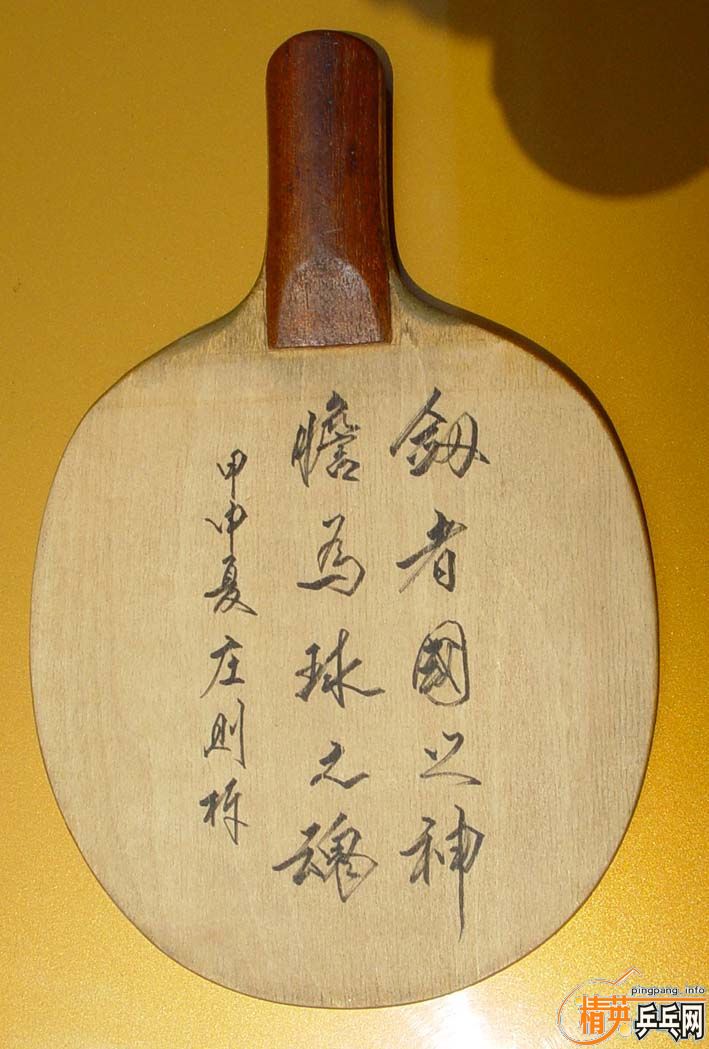 釼者國之神
膽為球之魂
甲申夏庄则栋
pingpang.info
精英乒乓网